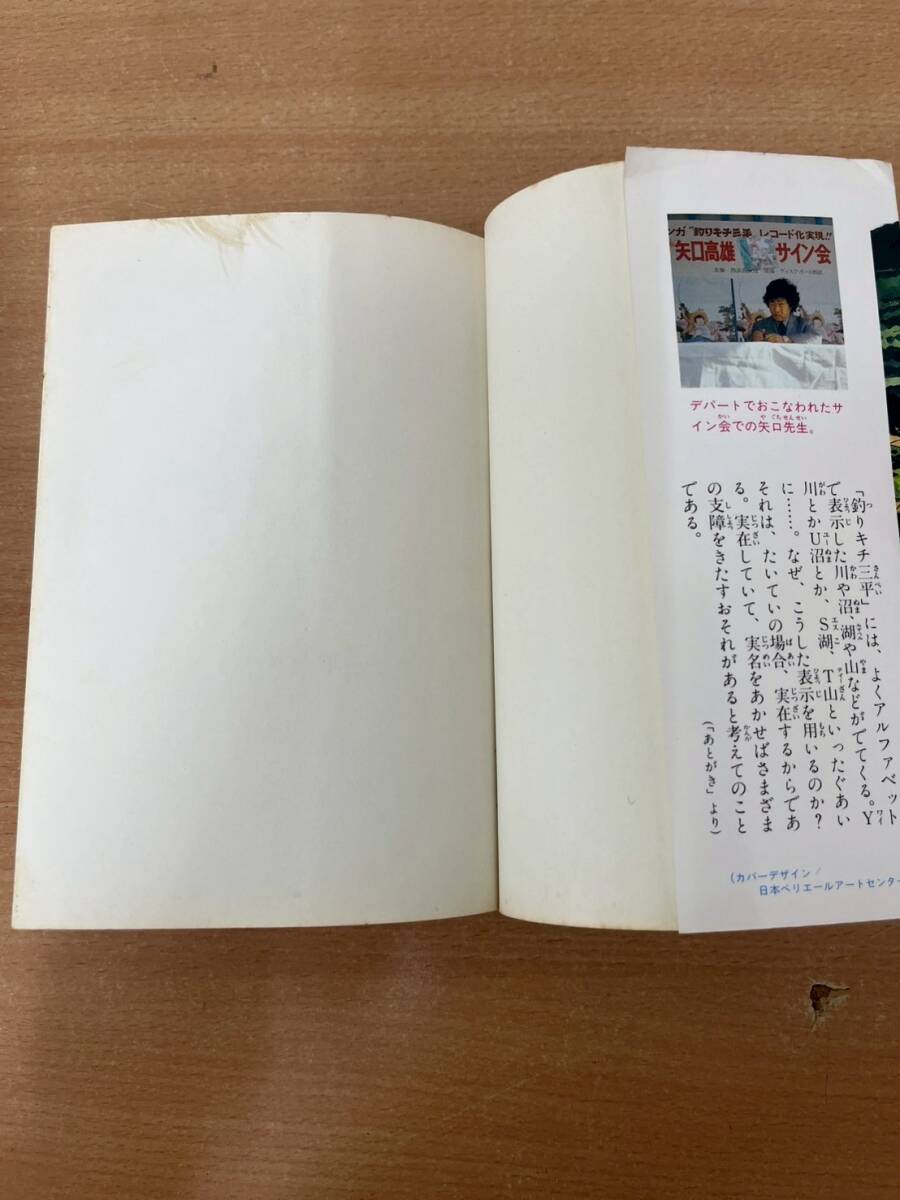 ンガ "釣りキチ三平 レコード化実現!!
矢口高雄 サイン会
デパートでおこなわれたサ
イン会での矢口先生。
「釣りキチ三平」には、よくアルファベット
で表示した川や沼、湖や山などがでてくる。Y
川とかU沼とか、S湖、T山といったぐあい
に……。なぜ、こうした表示を用いるのか?
それは、たいていの場合、実在するからであ
る。実在していて、実名をあかせばさまざま
の支障をきたすおそれがあると考えてのこと
である。
(「あとがき」より)
(カバーデザイン/
日本ベリエールアートセンター